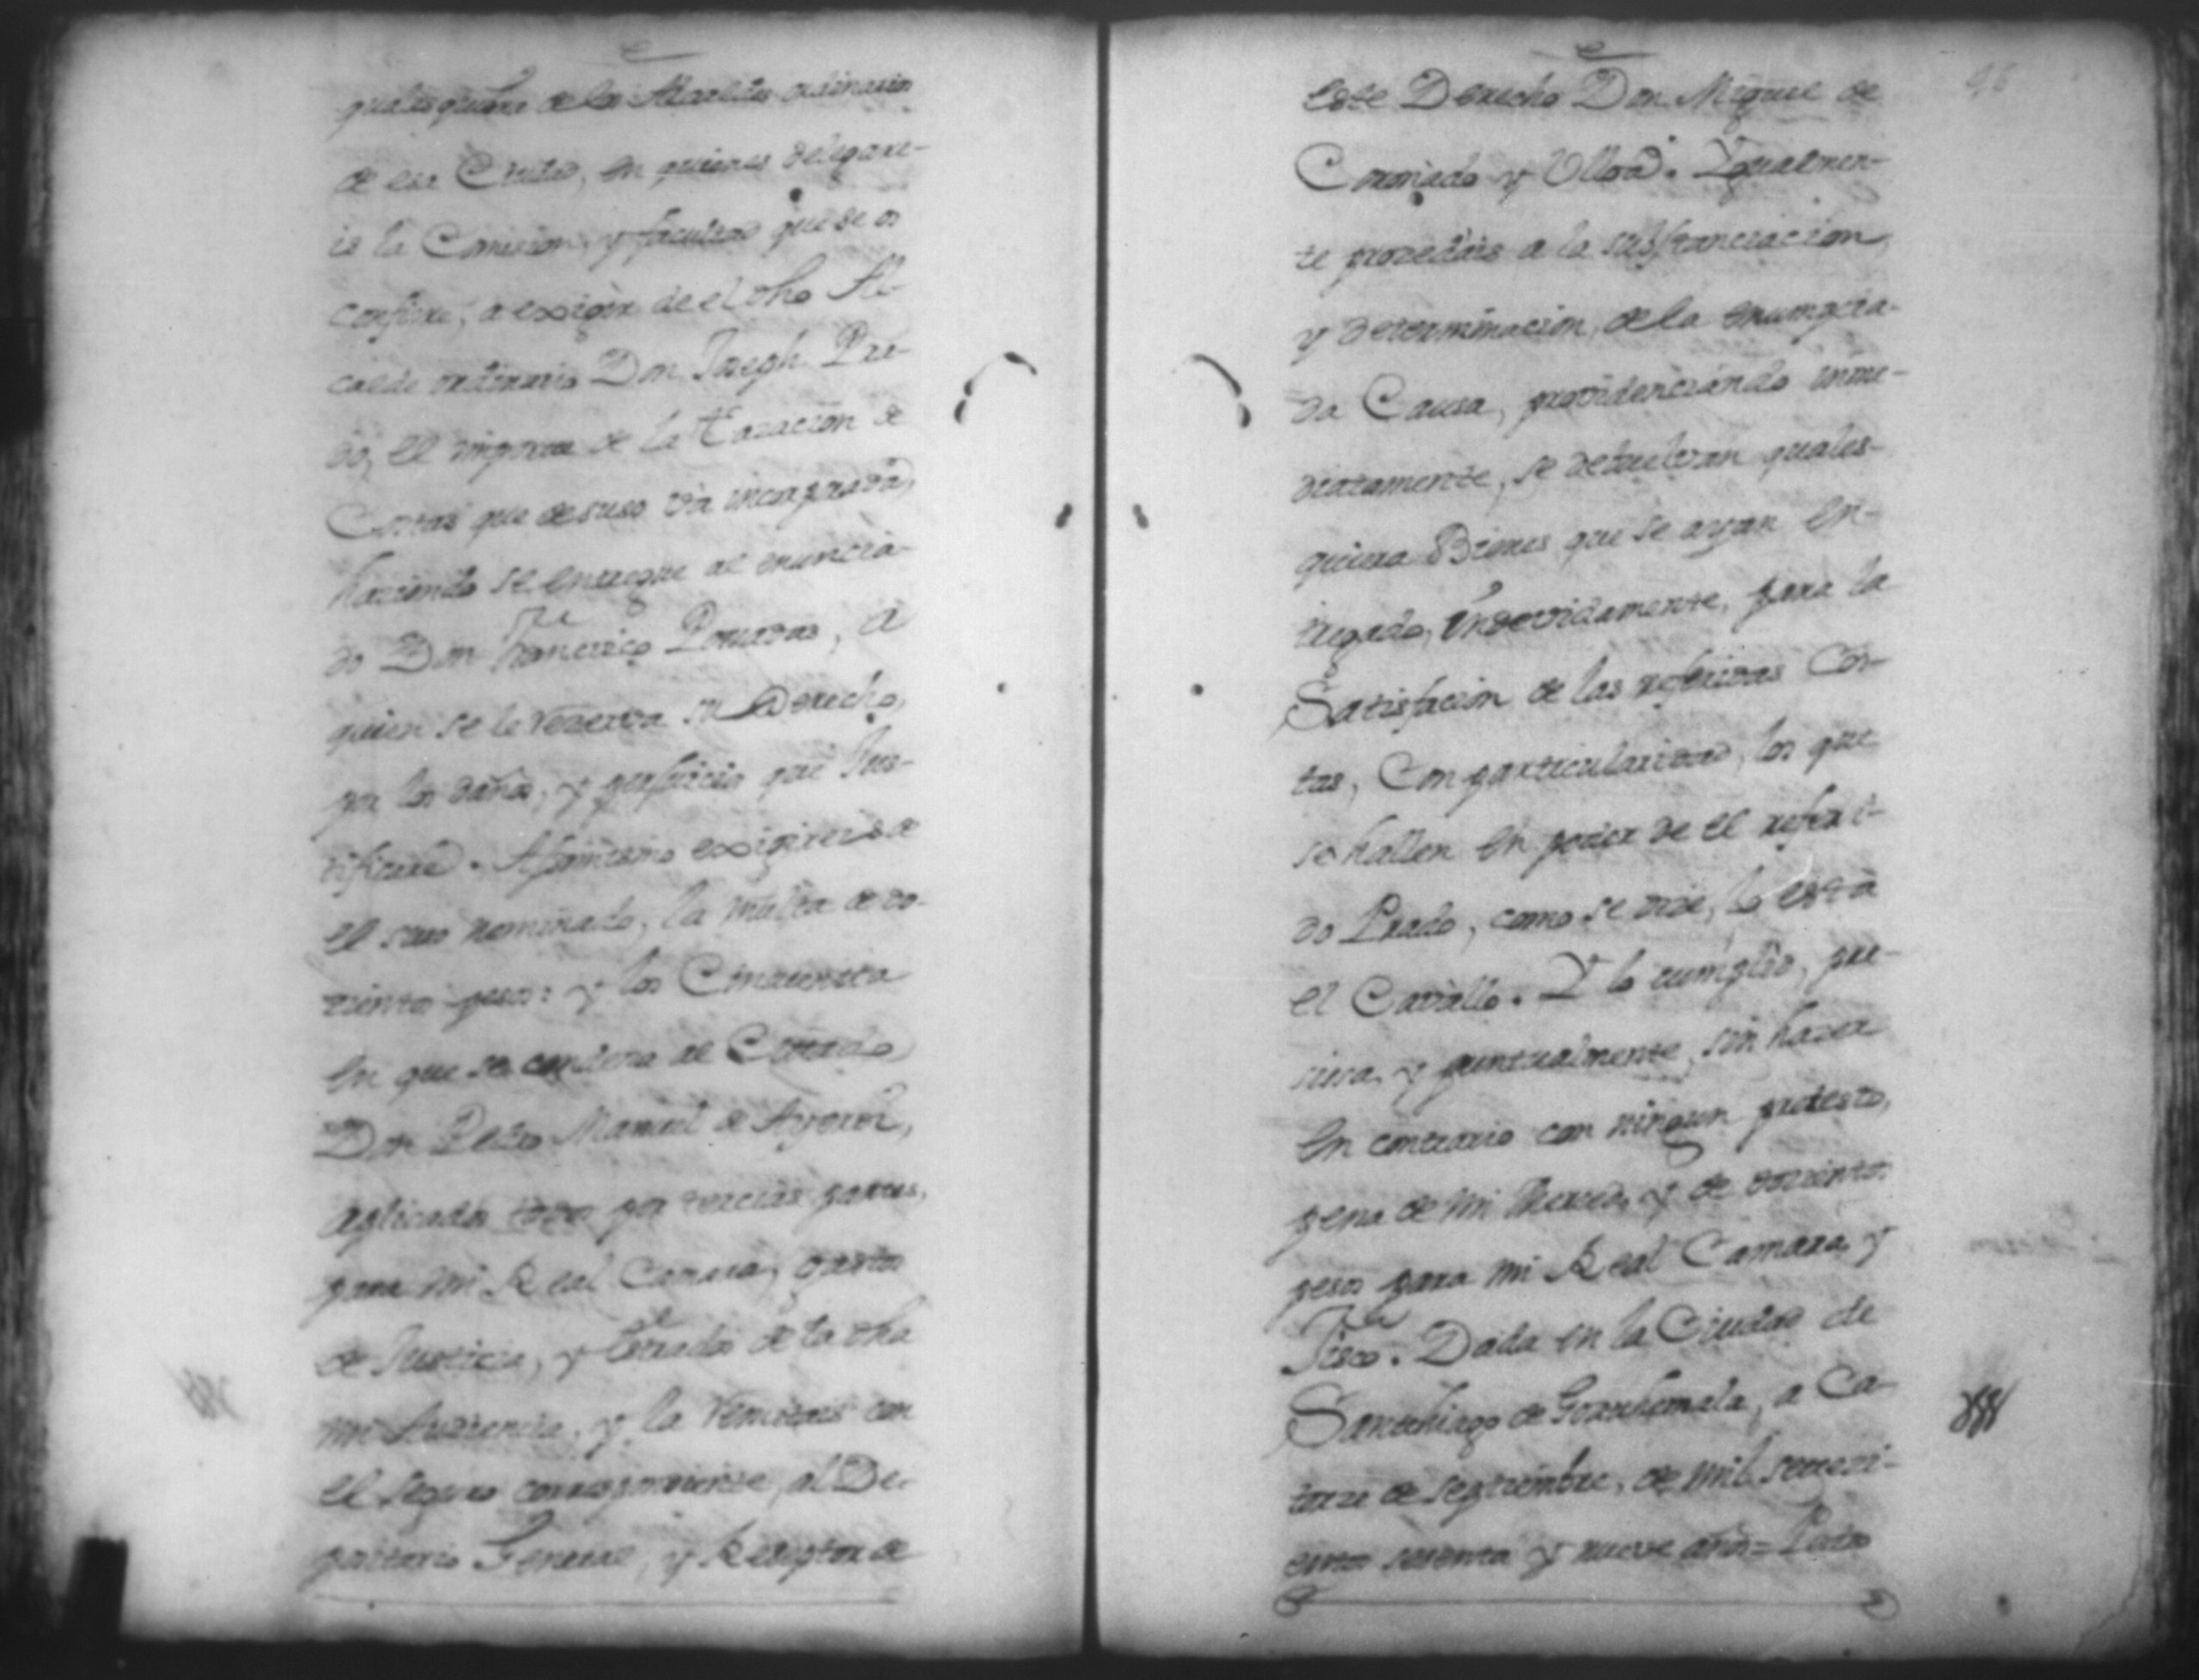 qualesquiera de los Alcaldes ordinarios
de esa Ciudad, en quienes delegare-
is la Comision, y facultad que se os
confiere, a exigir de el dho Al-
calde ordinario Don Joseph Pra-
do, el importe de la tazacion de
Costas que de suso va incorporada,
haciendo se entregue al enuncia-
do Don Francisco Posadas, a
quien se le reserva su Derecho,
por los daños, y perjuicios que Jus-
tificare. Asimismo exigireis de
el suso nominado, la multa de do-
cientos pesos: y los Cinquenta
en que se condena al
Don Pedro Manuel de
aplicados todo por tercias partes,
para mi Real Camara, gastos
de Justicia, y Estrados de la dha
mi Audiencia, y la remitais con
el seguro correspondiente, al De-
pocitario General, y Receptor de
este Derecho Don Miguel de
Coronado y Ulloa. Ygualmen-
te procedais a la substanciacion,
y determinacion, de la enumpcia-
da Causa, providenciando inme-
diatamente, se debuelvan quales-
quiera Bienes que se ayan en-
tregado, Yndevidamente, para la
Satisfacion de las referidas Cos-
tas, Con particularidad, los que
se hallen en poder de el referi-
do Prado, como se dice, lo està
el Cavallo. Y lo cumplid, pre-
cisa, y puntualmente, sin hazer
en contrario con ningun pretesto,
pena de mi Merced, y de docientos
pesos para mi Real Camara, y
Fisco. Dada en la Ciudad de
Santhiago de Goathemala, a Ca-
torze de septiembre, de mil setezi-
entos sesenta y nueve años = Pedro